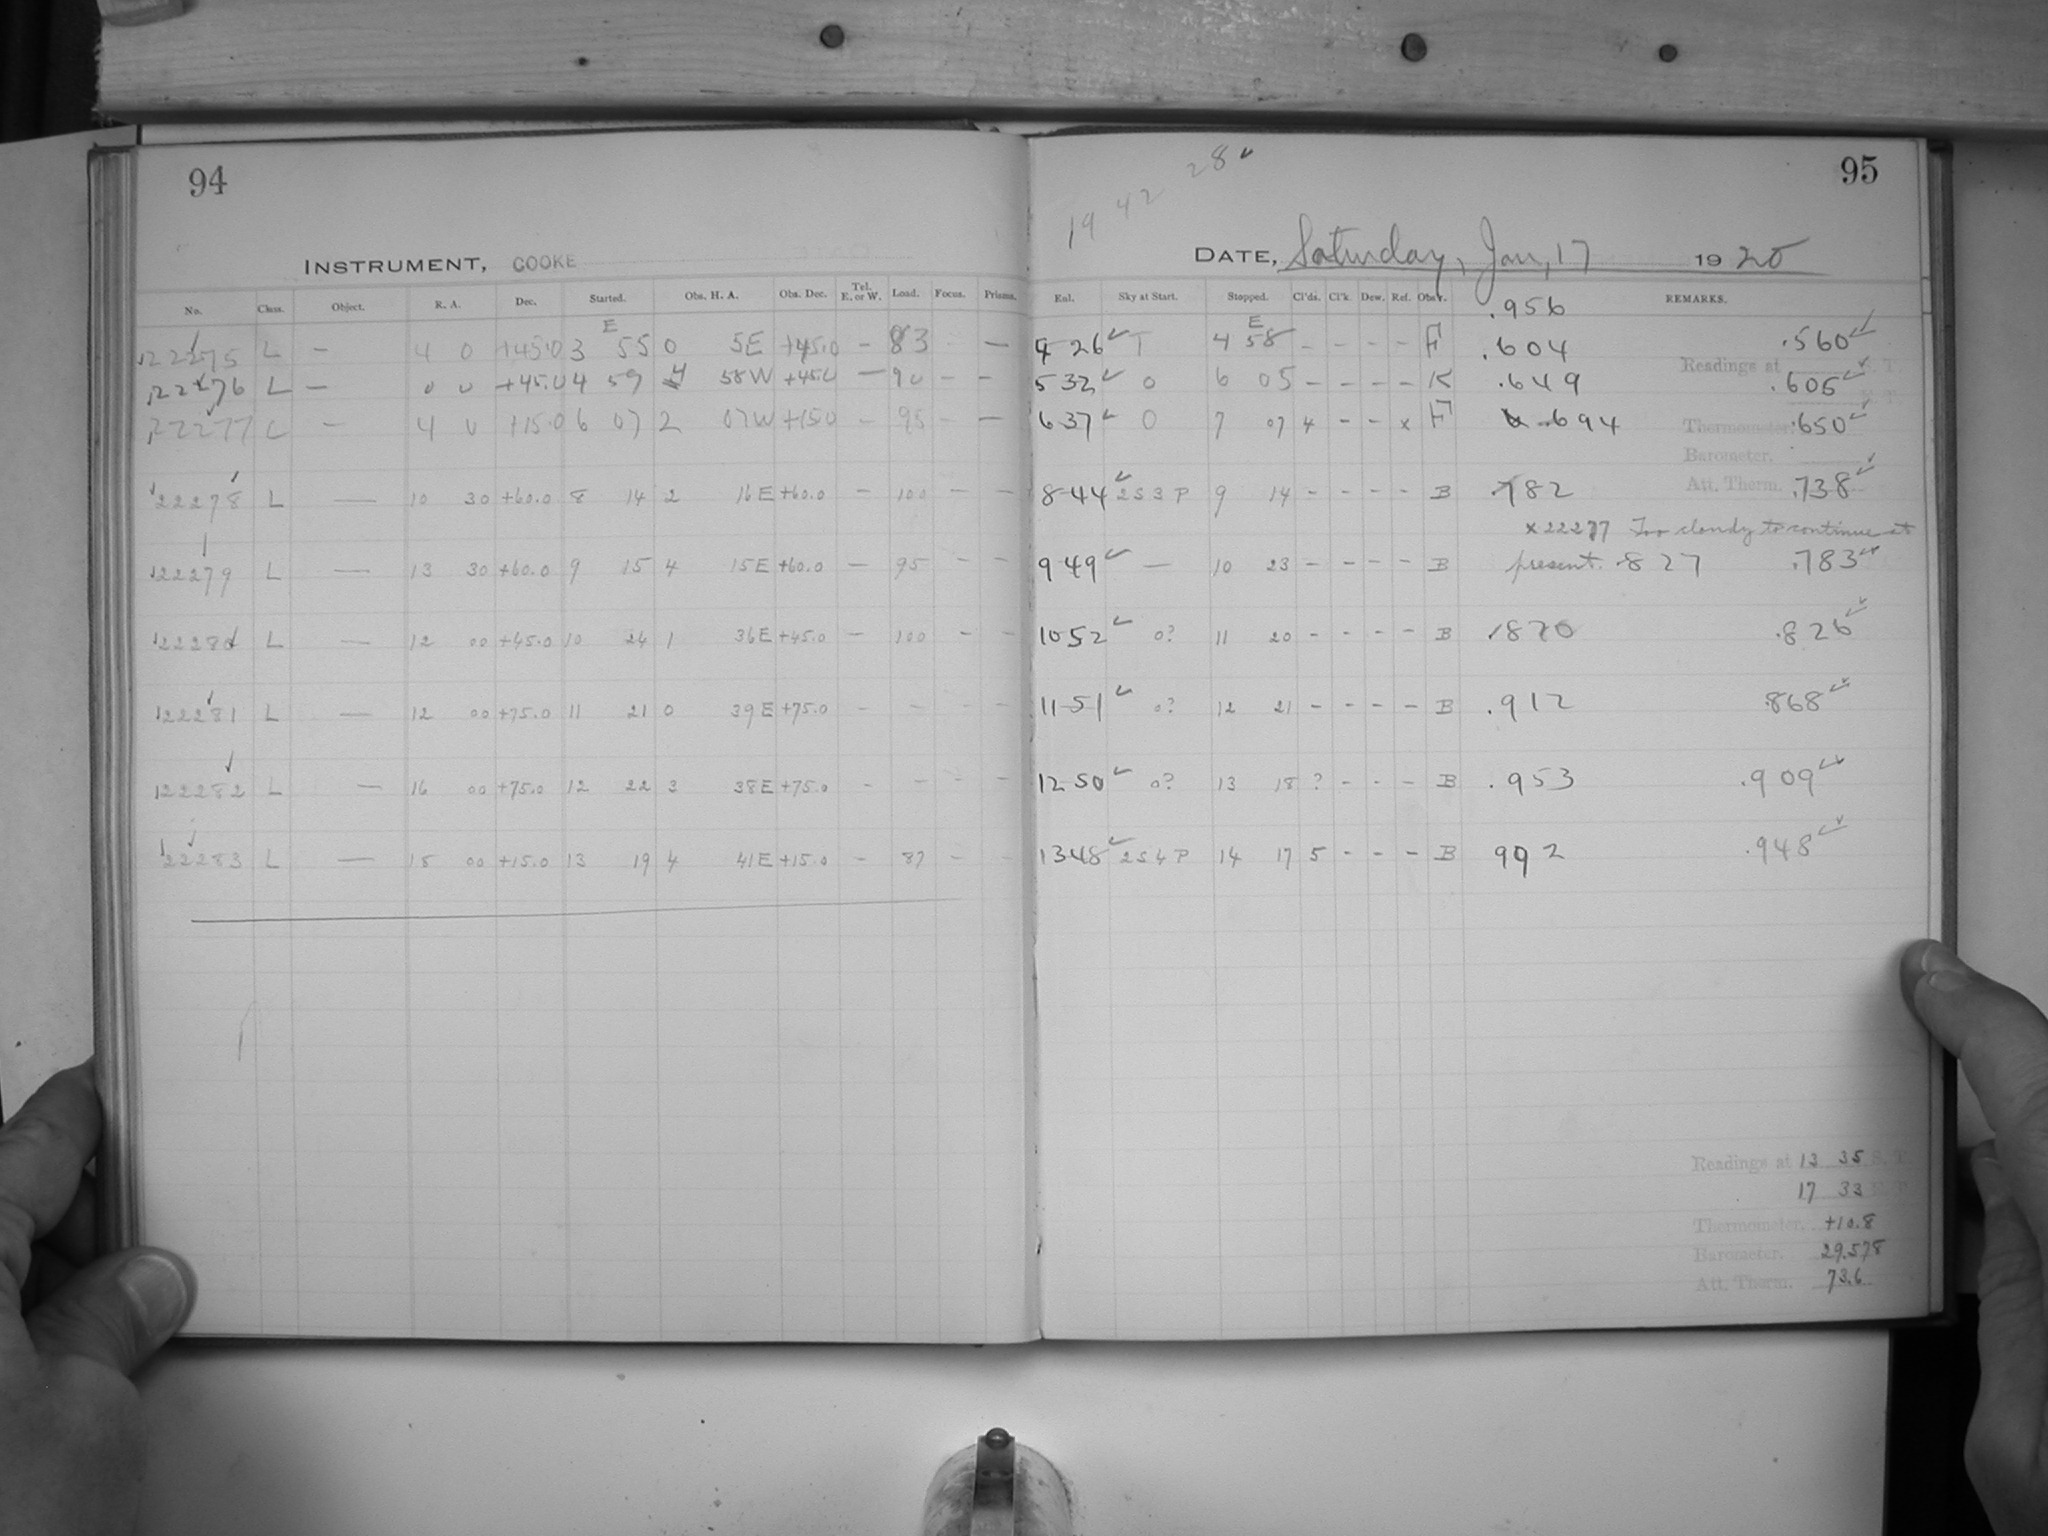 94
INSTRUMENT, COOKE
No. Class. Object. R. A. Dec. Started. Obs. H. A. Obs. Dec. Tel. E. or W. Load. Focus. Prisms.
22275 L — 4 0 +45.0 3 E 55 0 5E +45.0 – 83 – —
22276 L — 0 0 +45.0 4 59 4 58W +45.0 — 90 – –
22277 L — 4 0 +15.0 6 07 2 07W +15.0 – 95 – —
22278 L — 10 30 +60.0 8 14 2 16E +60.0 – 100 – –
22279 L — 13 30 +60.0 9 15 4 15E +60.0 — 95 – –
22280 L — 12 00 +45.0 10 24 1 36E +45.0 — 100 – –
22281 L — 12 00 +75.0 11 21 0 39E +75.0 – – – –
22282 L — 16 00 +75.0 12 22 3 38E +75.0 – – – –
22283 L — 18 00 +15.0 13 19 4 41E +15.0 – 87 – –
19 42 28 ✓
95
DATE, Saturday, Jan, 17 1920
Enl. Sky at Start. Stopped. Cl'ds. Cl'k. Dew. Ref. Obs'r. REMARKS.
.956
4 26 ✓ T 4 E 58 – – – – F .604 .560 ✓
Readings at S. T.
5 32 ✓ 0 6 05 – – – – K .649 .605 ✓
6 37 ✓ 0 7 07 4 – – x F .694 Thermometer. .650 ✓
Barometer.
8 44 ✓ 2 S 3 P 9 14 – – – – B .782 Att. Therm. .738 ✓
x 22277 Too cloudy to continue at
9 49 ✓ — 10 23 – – – – B present. .827 .783 ✓
10 52 ✓ 0? 11 20 – – – – B .870 .826 ✓
11 51 ✓ 0? 12 21 – – – – B .912 .868 ✓
12 50 ✓ 0? 13 18 ? – – – B .953 .909 ✓
13 48 ✓ 2 S 4 P 14 17 5 – – – B 992 .948 ✓
Readings at 13 35 S. T.
17 33
Thermometer. +10.8
Barometer. 29.578
Att. Therm. 73.6